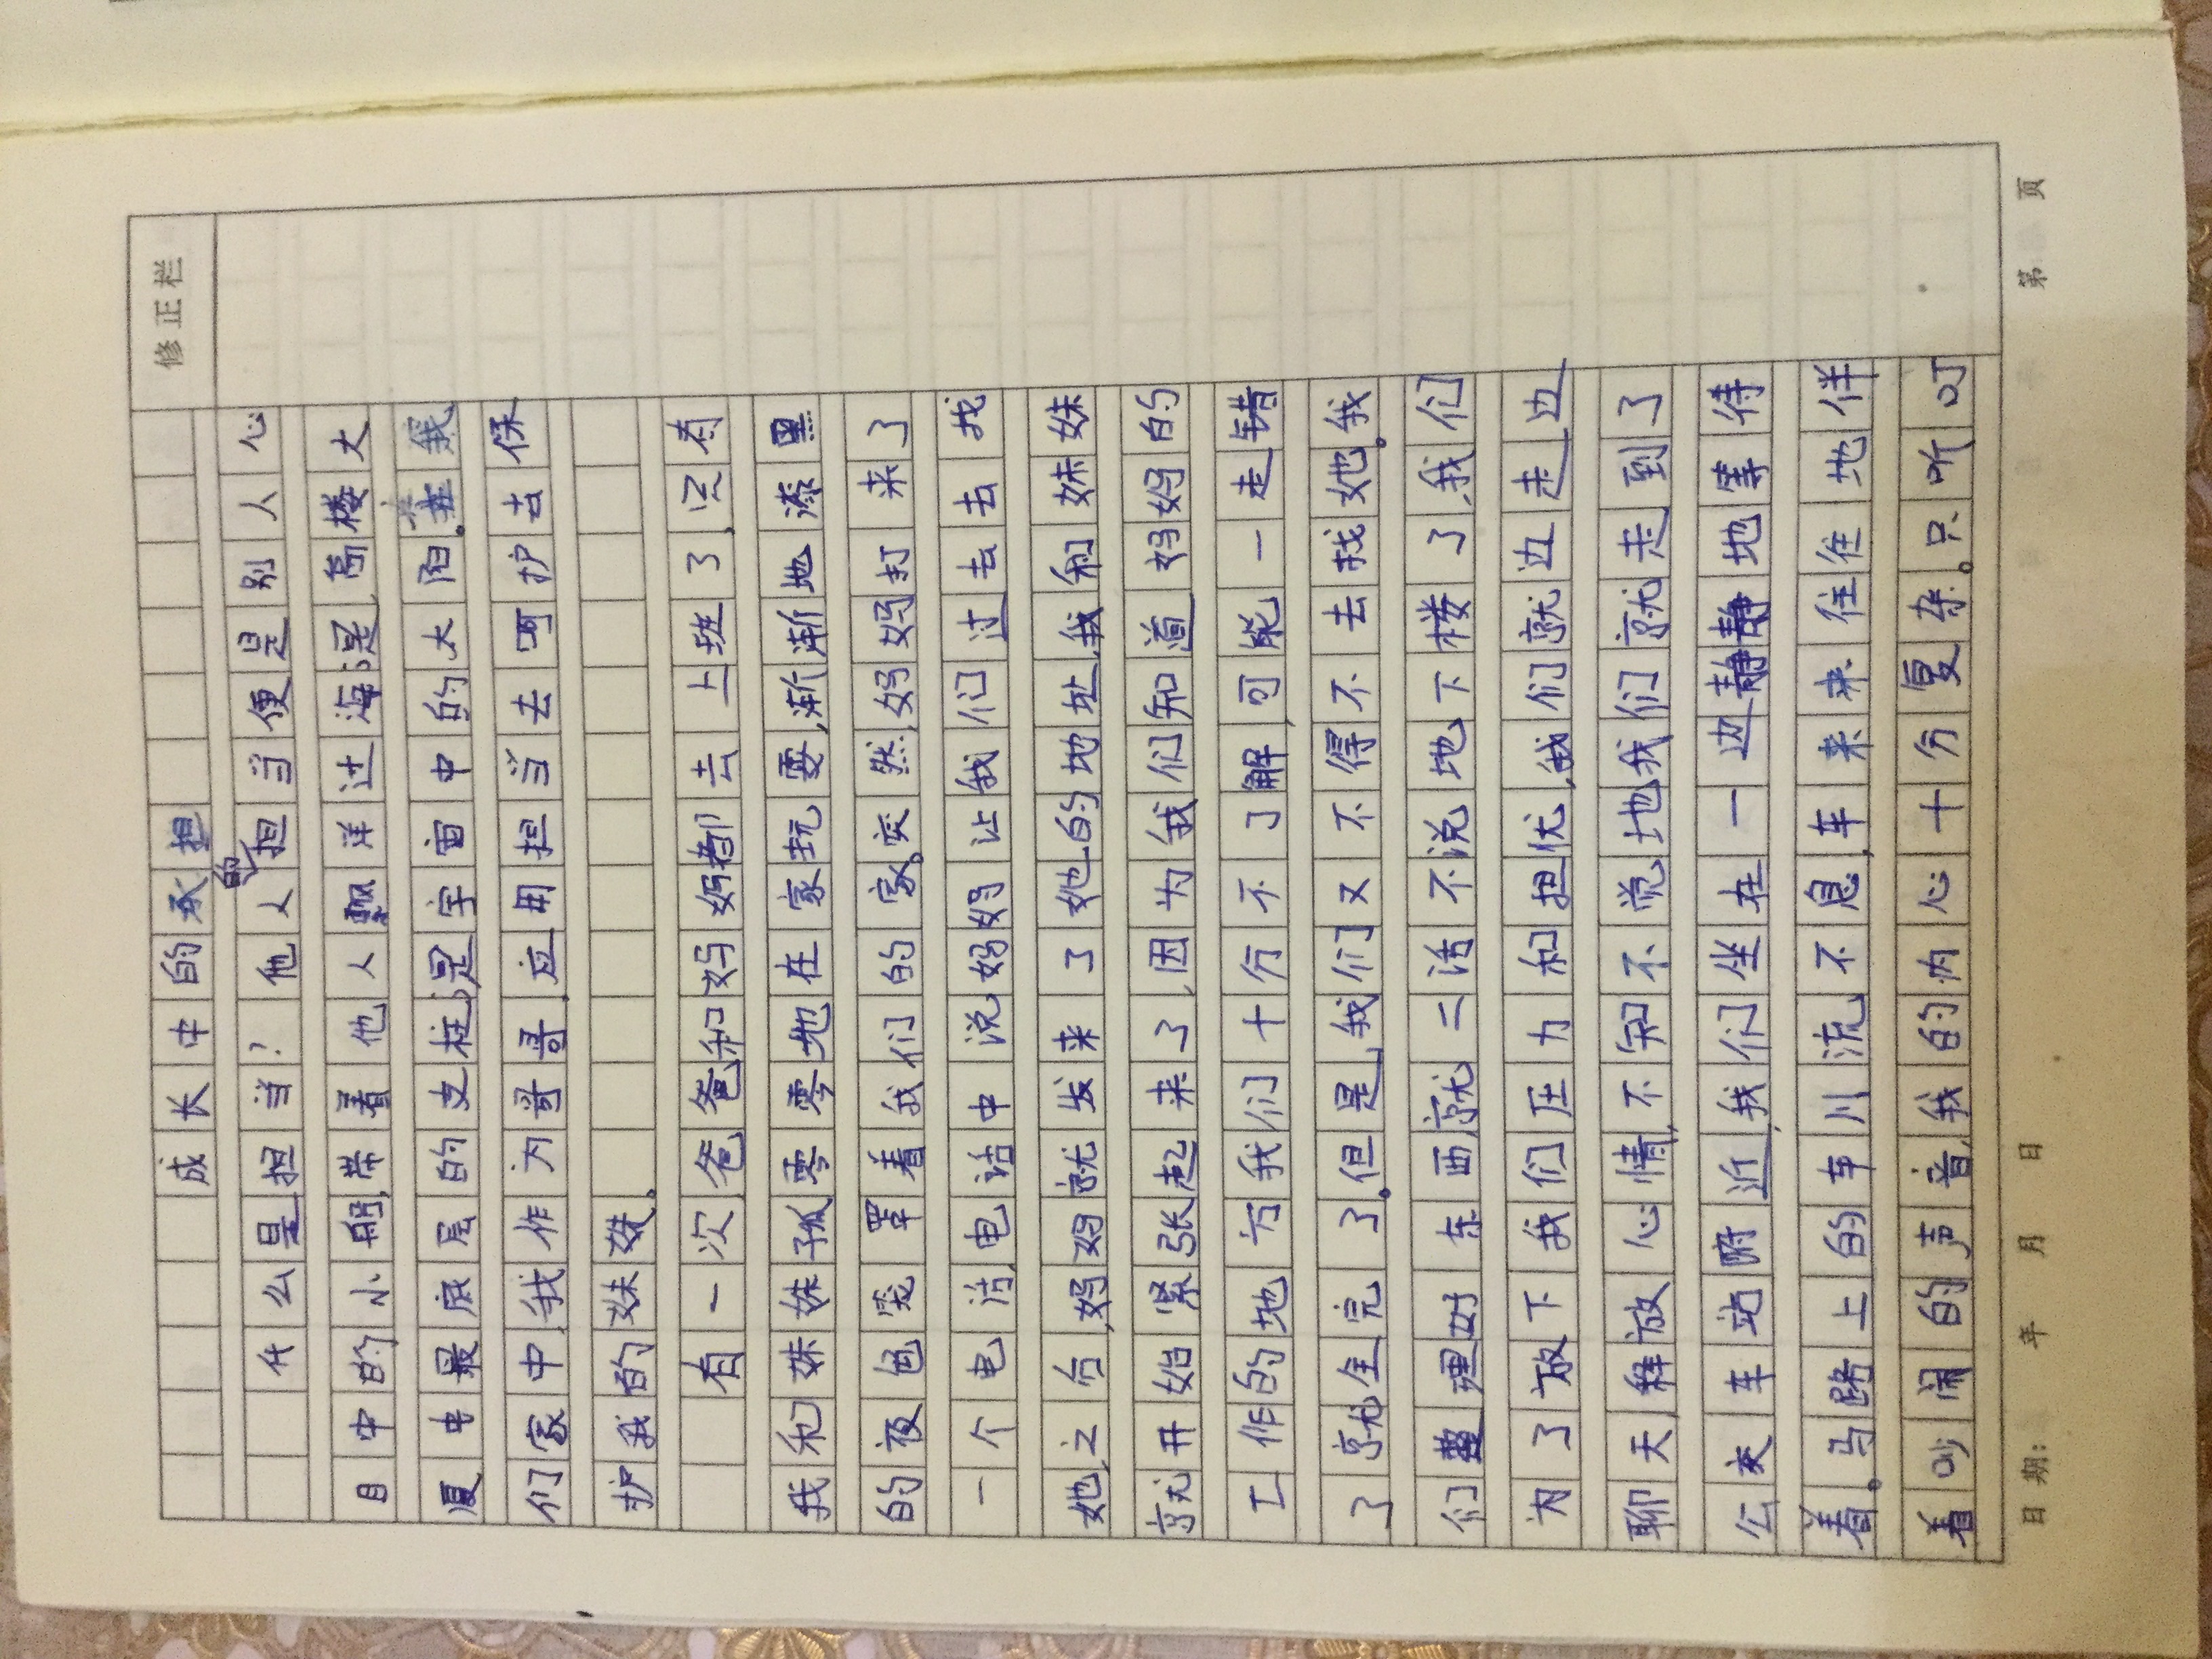 修正栏
成长中的承担
什么是担当?他人的担当便是别人心
目中的小船,带着他人飘洋过海;是高楼大
厦中最底层的支柱;是宇宙中的太阳。我
们家中,我作为哥哥,应用担当去呵护去保
护我的妹妹。
有一次,爸爸和妈妈都去上班了,只有
我和妹妹孤零零地在家玩耍,渐渐地漆黑
的夜色笼罩着我们的家。突然,妈妈打来了
一个电话,电话中说妈妈让我们过去去找
她,之后,妈妈就发来了她的地址,我和妹妹
就开始紧张起来了,因为我们知道妈妈的
工作的地方我们十分不了解,可能一走错
了就全完了。但是,我们又不得不去找她。我
们整理好东西,就二话不说地下楼了,我们
为了放下我们压力和担忧,我们就边走边
聊天,释放心情,不知不觉地我们就走到了
公交车站附近,我们坐在一边静静地等待
着。马路上的车川流不息,车来来往往地伴
着吵闹的声音,我的内心十分复杂。只听叮
日期: 年 月 日 第 页